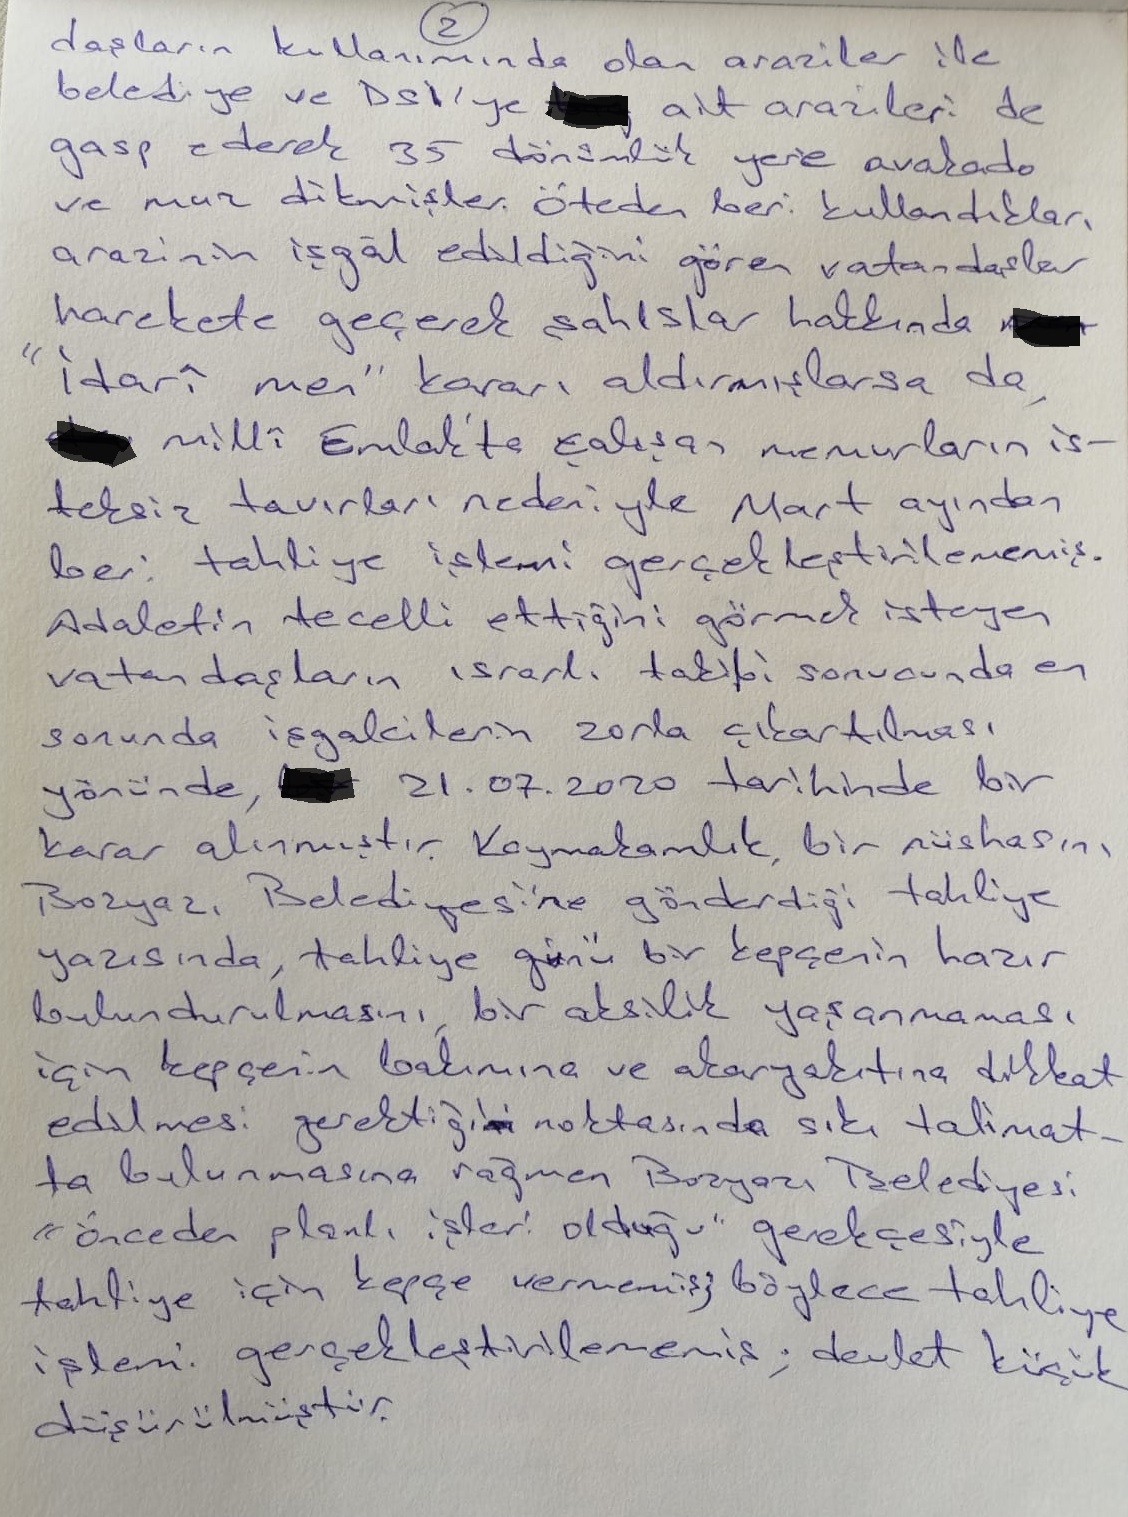 2
daşların kullanımında olan araziler ile
belediye ve DSİ'ye ait arazileri de
gasp ederek 35 dönümlük yere avakado
ve muz dikmişler. Öteden beri kullandıkları
arazinin işgâl edildiğini gören vatandaşlar
harekete geçerek şahıslar hakkında
"İdarî men" kararı aldırmışlarsa da,
millî Emlak'ta çalışan memurların is-
teksiz tavırları nedeniyle Mart ayından
beri tahliye işlemi gerçekleştirilememiş.
Adaletin tecelli ettiğini görmek isteyen
vatandaşların ısrarlı takibi sonucunda en
sonunda işgalcilerin zorla çıkartılması
yönünde, 21.07.2020 tarihinde bir
karar alınmıştır. Kaymakamlık, bir nüshasını
Bozyazı Belediyesi'ne gönderdiği tahliye
yazısında, tahliye günü bir kepçenin hazır
bulundurulmasını, bir aksilik yaşanmaması
için kepçenin bakımına ve akaryakıtına dikkat
edilmesi gerektiği noktasında sıkı talimat-
ta bulunmasına rağmen Bozyazı Belediyesi
"önceden planlı işleri olduğu" gerekçesiyle
tahliye için kepçe vermemiş; böylece tahliye
işlemi gerçekleştirilememiş; devlet küçük
düşürülmüştür.